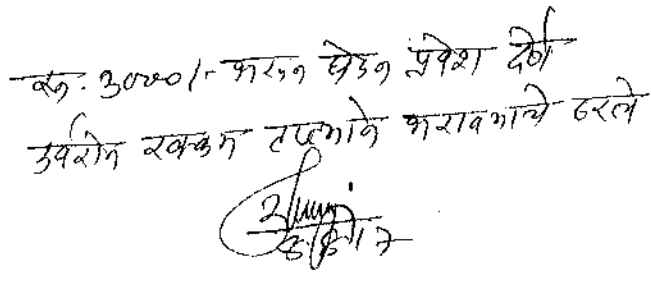 रू. ३०००/- भरून घेऊन प्रवेश देणे
उर्वरीत रक्कम टप्प्याने भरावयाचे ठरले